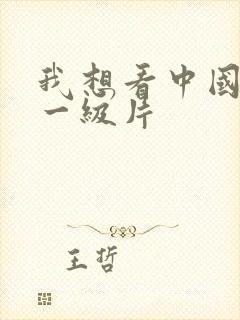 我想看中國
一級片
王哲